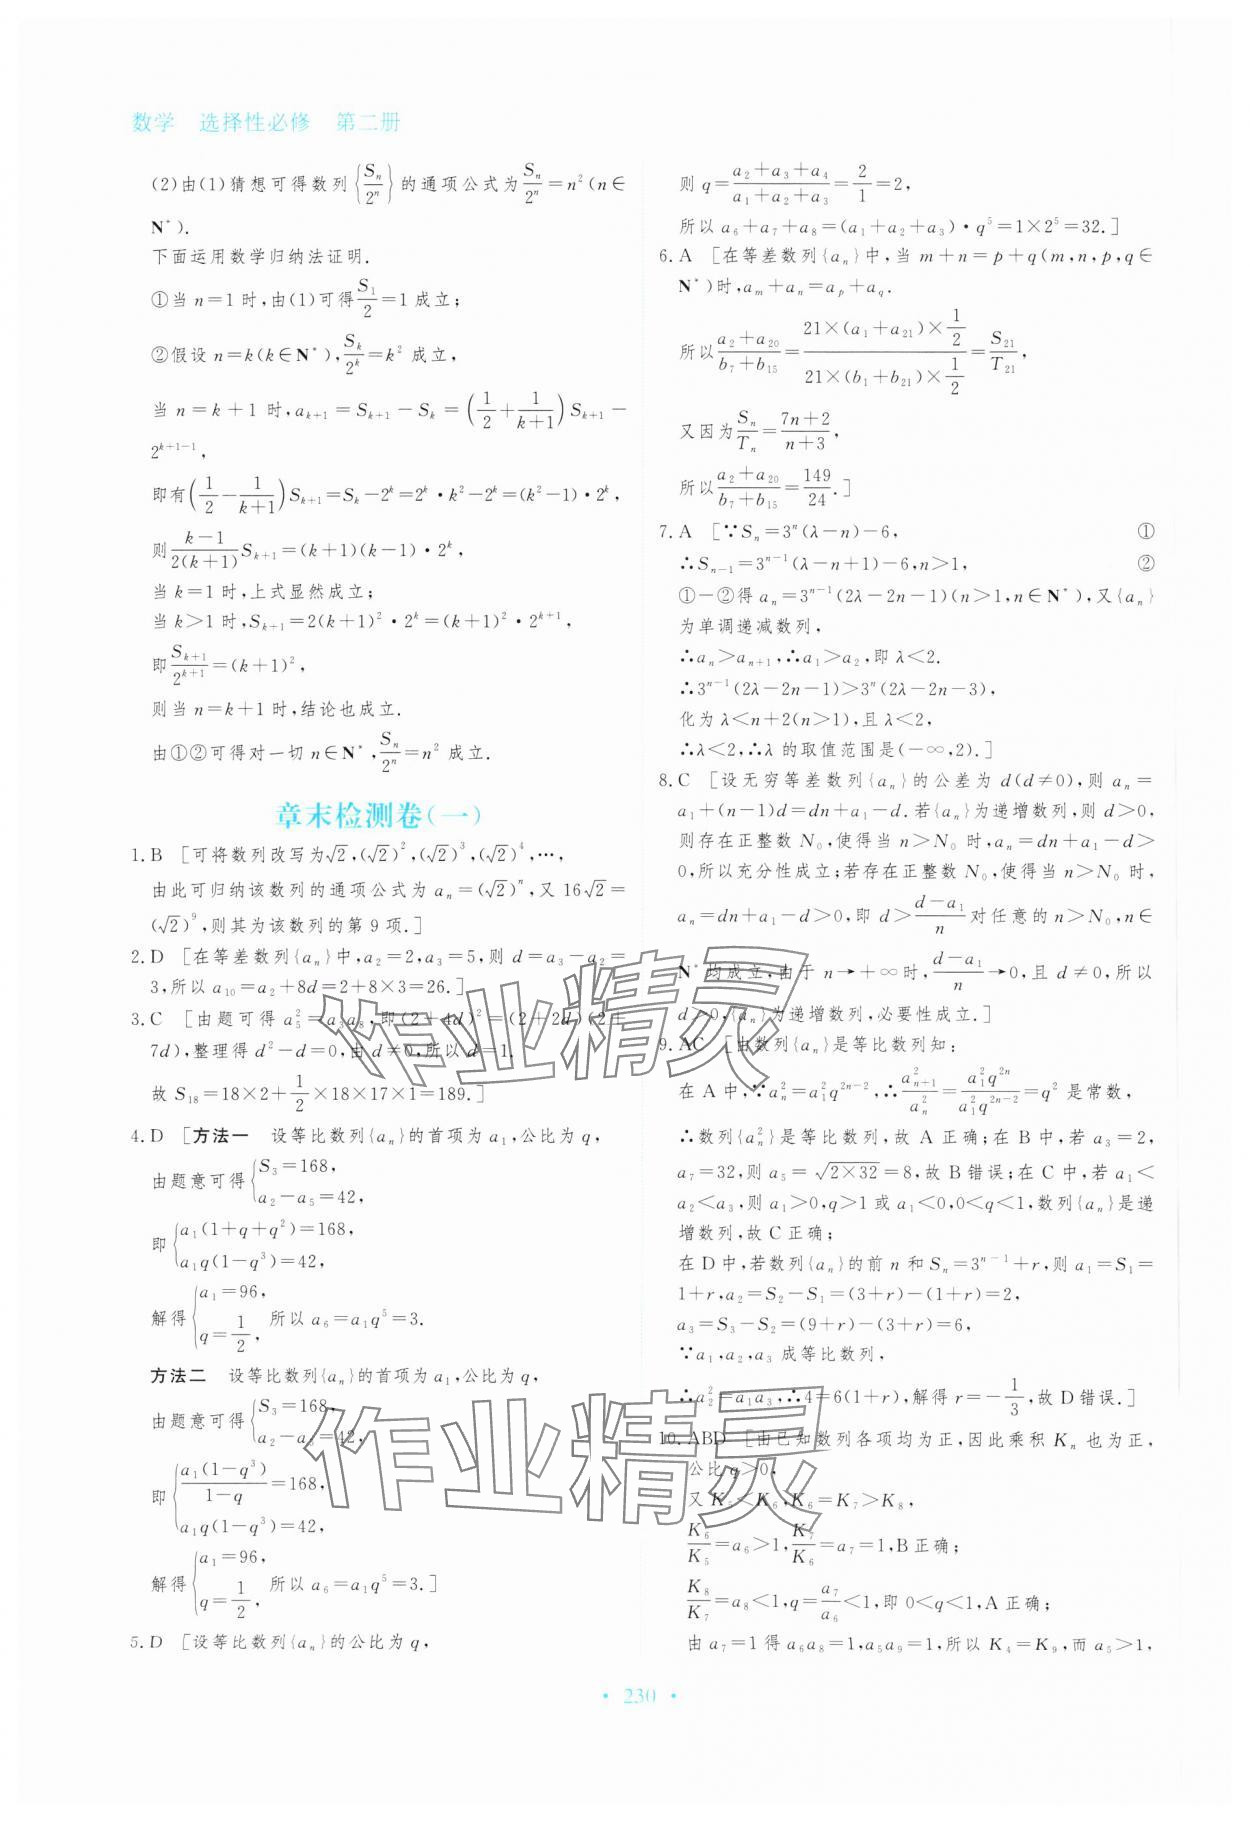 数学 选择性必修 第二册
(2)由(1)猜想可得数列{S_n/2^n}的通项公式为S_n/2^n=n^2(n∈
N^*).
下面运用数学归纳法证明.
①当 n=1时,由(1)可得S_1/2=1成立;
②假设 n=k(k∈N^*),S_k/2^k=k^2 成立,
当 n=k+1 时,a_{k+1}=S_{k+1}-S_k=(1/2+1/(k+1))S_{k+1}-
2^{k+1-1},
即有(1/2-1/(k+1))S_{k+1}=S_k-2^k=2^k·k^2-2^k=(k^2-1)·2^k,
则(k-1)/(2(k+1))S_{k+1}=(k+1)(k-1)·2^k,
当 k=1时,上式显然成立;
当 k>1时,S_{k+1}=2(k+1)^2·2^k=(k+1)^2·2^{k+1},
即S_{k+1}/2^{k+1}=(k+1)^2,
则当 n=k+1时,结论也成立.
由①②可得对一切 n∈N^*,S_n/2^n=n^2 成立.
章末检测卷(一)
1.B [可将数列改写为√2,(√2)^2,(√2)^3,(√2)^4,…,
由此可归纳该数列的通项公式为 a_n=(√2)^n,又 16√2=
(√2)^9,则其为该数列的第 9 项.]
2.D [在等差数列{a_n}中,a_2=2,a_3=5,则 d=a_3-a_2=
3,所以 a_10=a_2+8d=2+8×3=26.]
3.C [由题可得 a_5^2=a_3a_8,即(2+4d)^2=(2+2d)(2+
7d),整理得 d^2-d=0,由 d≠0,所以 d=1.
故 S_18=18×2+1/2×18×17×1=189.]
4.D [方法一 设等比数列{a_n}的首项为 a_1,公比为 q,
由题意可得{S_3=168, a_2-a_5=42,
即{a_1(1+q+q^2)=168, a_1q(1-q^3)=42,
解得{a_1=96, q=1/2, 所以 a_6=a_1q^5=3.
方法二 设等比数列{a_n}的首项为 a_1,公比为 q,
由题意可得{S_3=168, a_2-a_5=42,
即{a_1(1-q^3)/(1-q)=168, a_1q(1-q^3)=42,
解得{a_1=96, q=1/2, 所以 a_6=a_1q^5=3.]
5.D [设等比数列{a_n}的公比为 q,
则 q=(a_2+a_3+a_4)/(a_1+a_2+a_3)=2/1=2,
所以 a_6+a_7+a_8=(a_1+a_2+a_3)·q^5=1×2^5=32.]
6.A [在等差数列{a_n}中,当 m+n=p+q(m,n,p,q∈
N^*)时,a_m+a_n=a_p+a_q.
所以(a_2+a_20)/(b_7+b_15)=(21×(a_1+a_21)×1/2)/(21×(b_1+b_21)×1/2)=S_21/T_21,
又因为S_n/T_n=(7n+2)/(n+3),
所以(a_2+a_20)/(b_7+b_15)=149/24.]
7.A [∵S_n=3^n(λ-n)-6, ①
∴S_{n-1}=3^{n-1}(λ-n+1)-6,n>1, ②
①-②得 a_n=3^{n-1}(2λ-2n-1)(n>1,n∈N^*),又{a_n}
为单调递减数列,
∴a_n>a_{n+1},∴a_1>a_2,即 λ<2.
∴3^{n-1}(2λ-2n-1)>3^n(2λ-2n-3),
化为 λ<n+2(n>1),且 λ<2,
∴λ<2,∴λ 的取值范围是(-∞,2).]
8.C [设无穷等差数列{a_n}的公差为 d(d≠0),则 a_n=
a_1+(n-1)d=dn+a_1-d.若{a_n}为递增数列,则 d>0,
则存在正整数 N_0,使得当 n>N_0 时,a_n=dn+a_1-d>
0,所以充分性成立;若存在正整数 N_0,使得当 n>N_0 时,
a_n=dn+a_1-d>0,即 d>(d-a_1)/n对任意的 n>N_0,n∈
N^*均成立,由于 n→+∞时,(d-a_1)/n→0,且 d≠0,所以
d>0,{a_n}为递增数列,必要性成立.]
9.AC [由数列{a_n}是等比数列知:
在 A 中,∵a_n^2=a_1^2q^{2n-2},∴a_{n+1}^2/a_n^2=a_1^2q^{2n}/(a_1^2q^{2n-2})=q^2 是常数,
∴数列{a_n^2}是等比数列,故 A 正确;在 B 中,若 a_3=2,
a_7=32,则 a_5=√(2×32)=8,故 B错误;在 C 中,若 a_1<
a_2<a_3,则 a_1>0,q>1 或 a_1<0,0<q<1,数列{a_n}是递
增数列,故 C 正确;
在 D 中,若数列{a_n}的前 n 和 S_n=3^{n-1}+r,则 a_1=S_1=
1+r,a_2=S_2-S_1=(3+r)-(1+r)=2,
a_3=S_3-S_2=(9+r)-(3+r)=6,
∵a_1,a_2,a_3 成等比数列,
∴a_2^2=a_1a_3,∴4=6(1+r),解得 r=-1/3,故 D 错误.]
10.ABD [由已知数列各项均为正,因此乘积 K_n 也为正,
公比 q>0,
又 K_5<K_6,K_6=K_7>K_8,
K_6/K_5=a_6>1,K_7/K_6=a_7=1,B 正确;
K_8/K_7=a_8<1,q=a_7/a_6<1,即 0<q<1,A 正确;
由 a_7=1 得 a_6a_8=1,a_5a_9=1,所以 K_4=K_9,而 a_5>1,
·230·
作业精灵
作业精灵